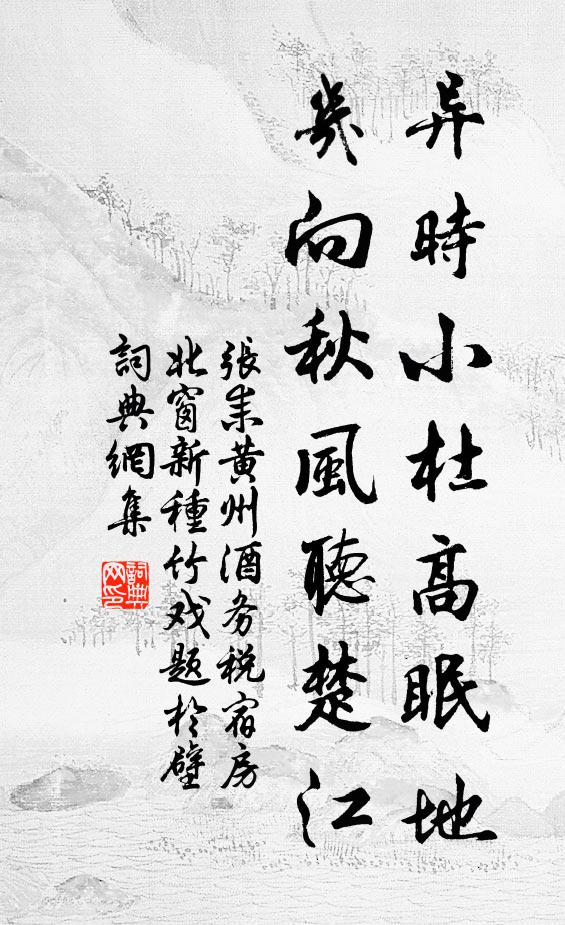 异時小杜高眠地
幾向秋風聽楚江
張耒黄州酒务税宿房
北窗新種竹戏題於壁
詞典網集
詞典网印